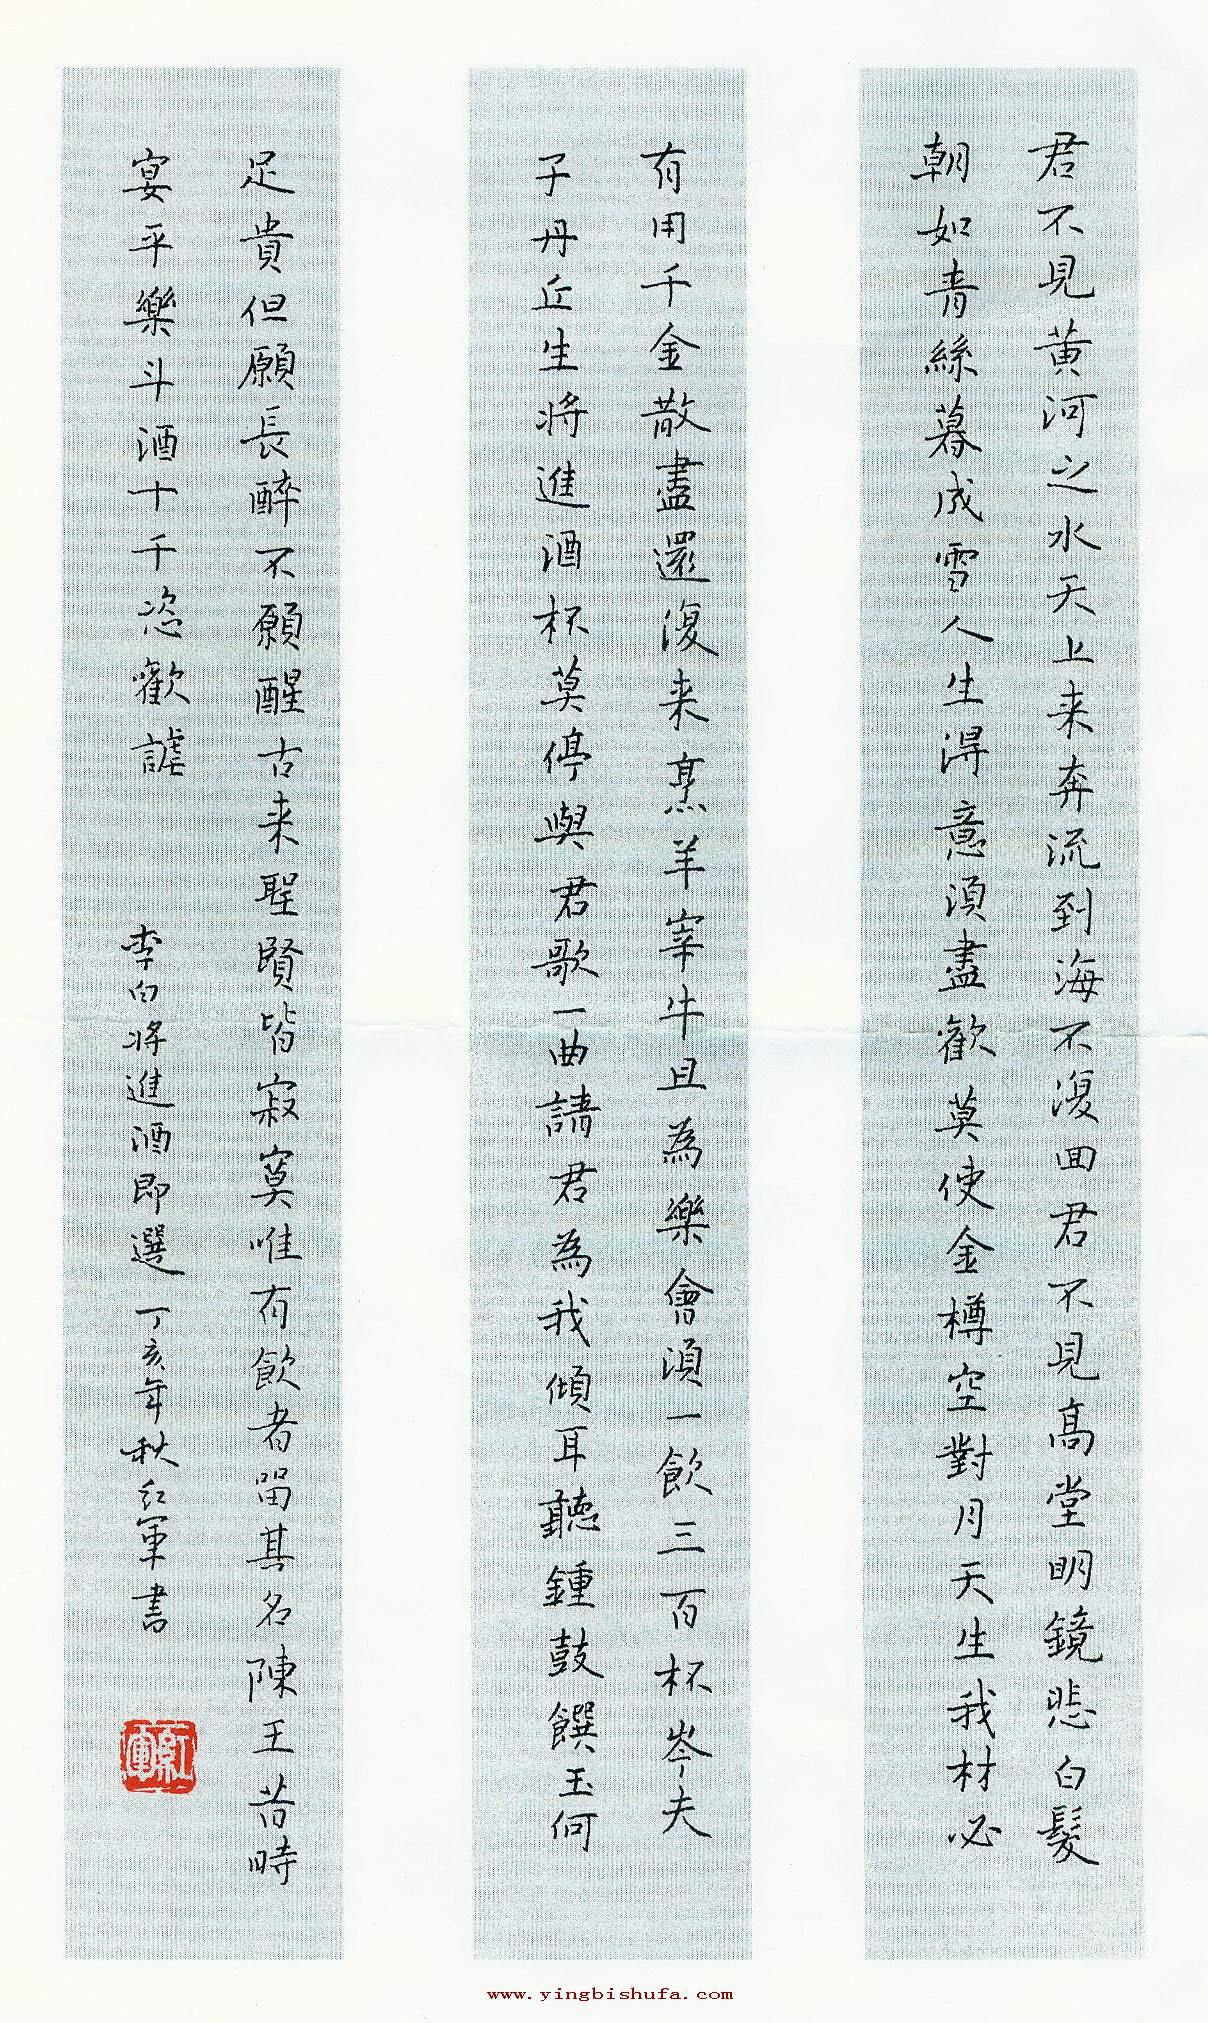 君不見黃河之水天上来奔流到海不復回君不見高堂明鏡悲白髮
朝如青絲暮成雪人生得意須盡歡莫使金樽空對月天生我材必
有用千金散盡還復来烹羊宰牛且為樂會須一飲三百杯岑夫
子丹丘生將進酒杯莫停與君歌一曲請君為我傾耳聽鍾鼓饌玉何
足貴但願長醉不願醒古来聖賢皆寂寞唯有飲者留其名陳王昔時
宴平樂斗酒十千恣歡謔
李白將進酒即選 丁亥年秋紅軍書
紅軍
www.yingbishufa.com